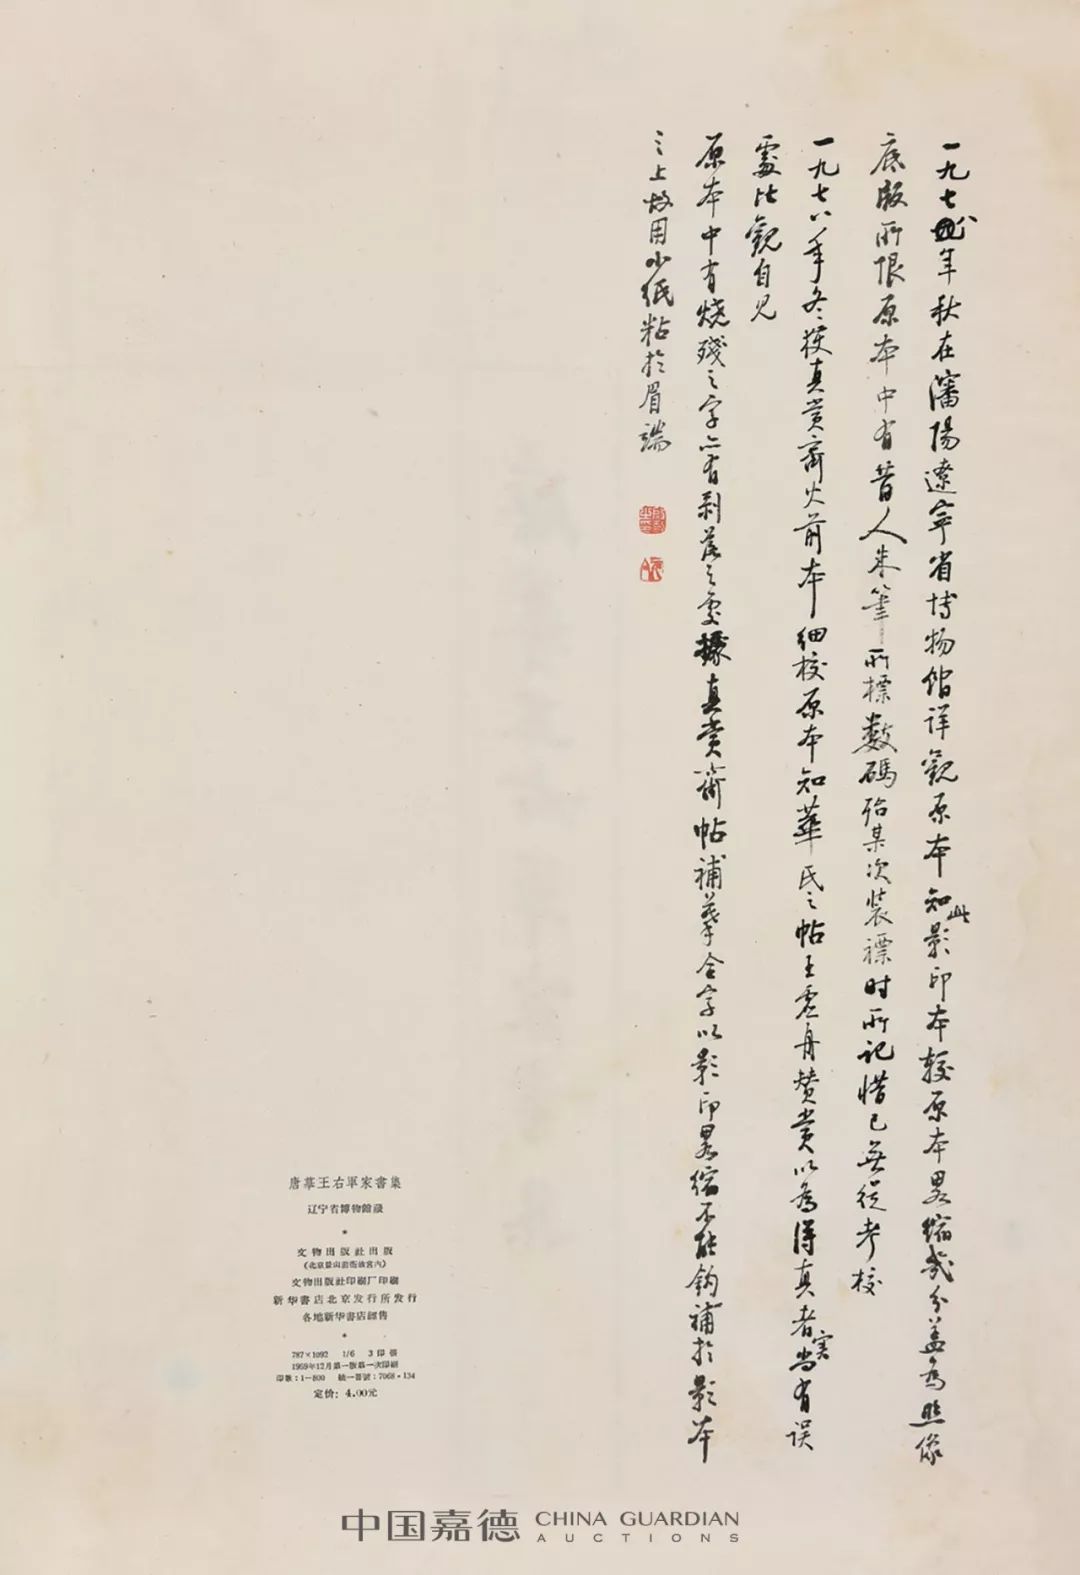 一九七四年秋在瀋陽遼寧省博物館詳觀原本知此影印本較原本畧縮幾分蓋為照像
底版所限原本中有昔人朱筆所標數碼殆某次裝褾时所记惜已無從考校
一九七八年冬獲真賞齋火前本细校原本知華氏之帖王虛舟賛賞以為得真者实尚有误
處比觀自見
原本中有燒殘之字亦有剥落之處據真賞齋帖補摹全字以影印畧縮不能鈎補於影本
之上故用小紙粘於眉端
唐摹王右軍家書集
辽宁省博物館藏
文物出版社出版
(北京景山前街故宫内)
文物出版社印刷厂印刷
新华書店北京发行所发行
各地新华書店經售
787×1092 1/6 3印張
1959年12月第一版第一次印刷
印数:1—800 統一書號:7068·134
定价:4.00元
中国嘉德 CHINA GUARDIAN
AUCTIONS